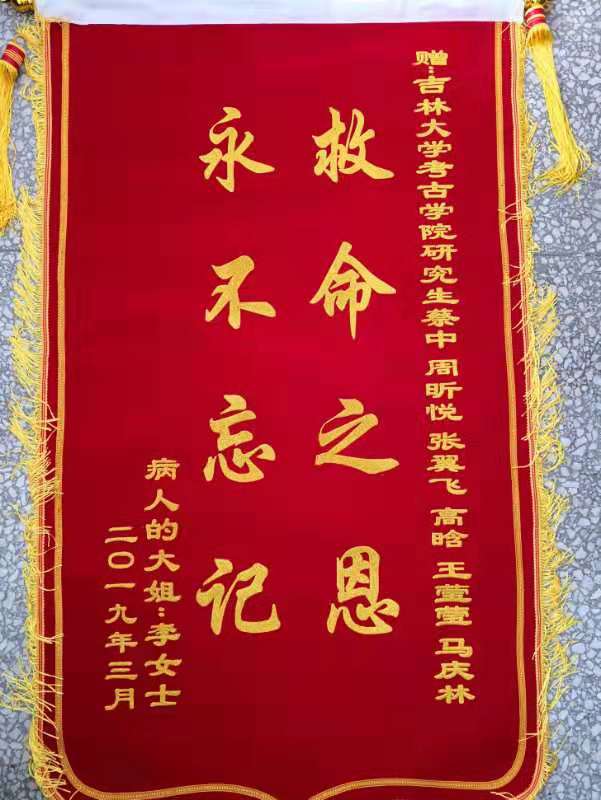 赠:吉林大学考古学院研究生蔡中 周昕悦 张翼飞 高晗 王萱萱 马庆林
救命之恩
永不忘记
病人的大姐:李女士
二〇一九年三月